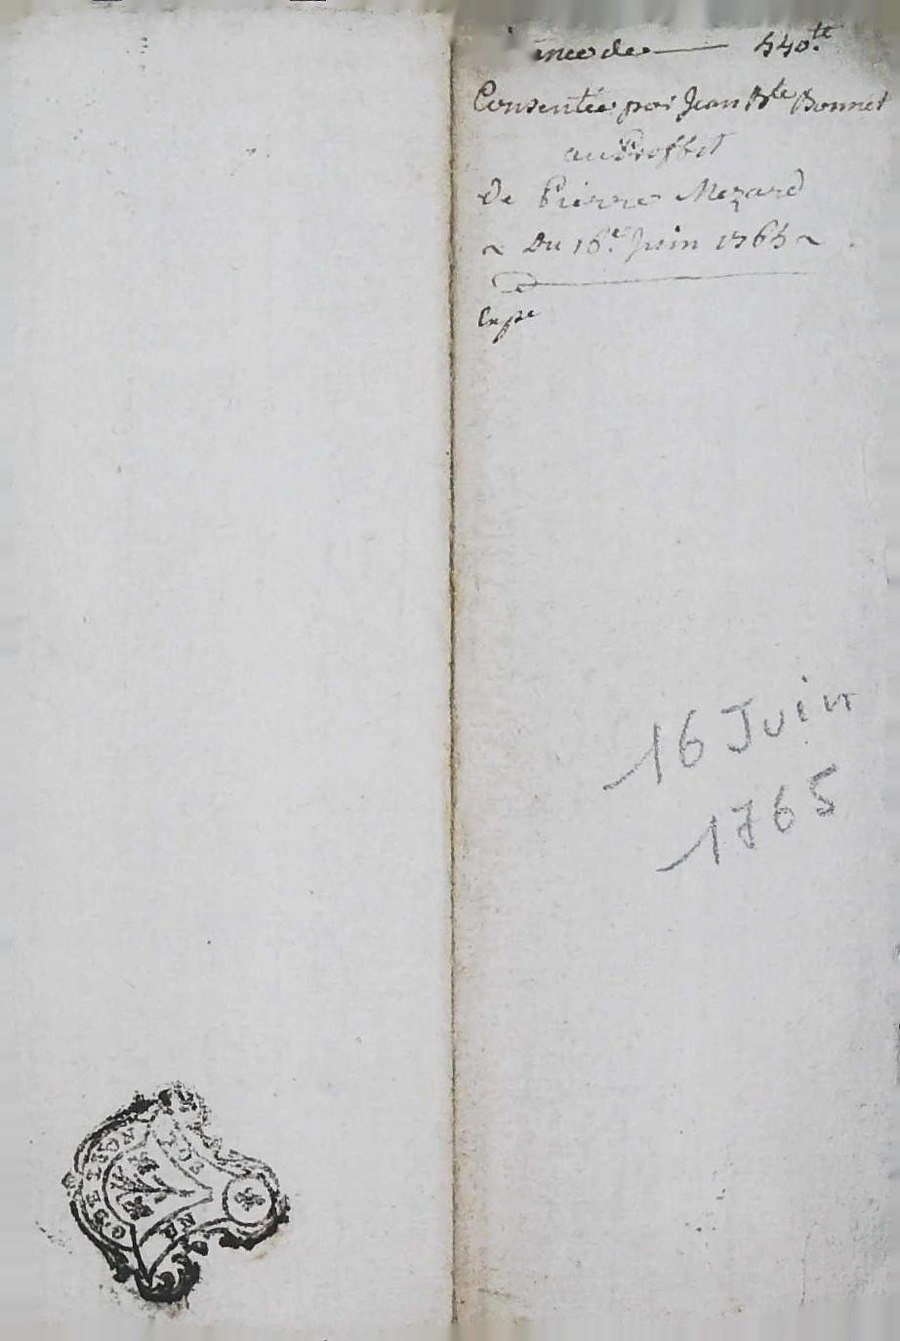 de 540.te
Consentée par Jean Bte Bonnet
au Proffit
De Pierre Mezard
~ Du 16e. Juin 1765 ~
Expe
16 Juin
1765
DE LYON